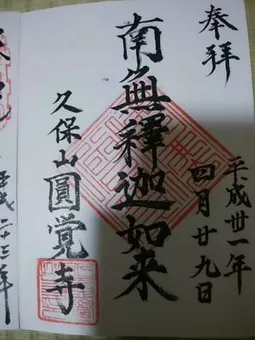 奉拝
平成卅一年
四月廿九日
南無釋迦如来
久保山圓覚寺
平成二十三年